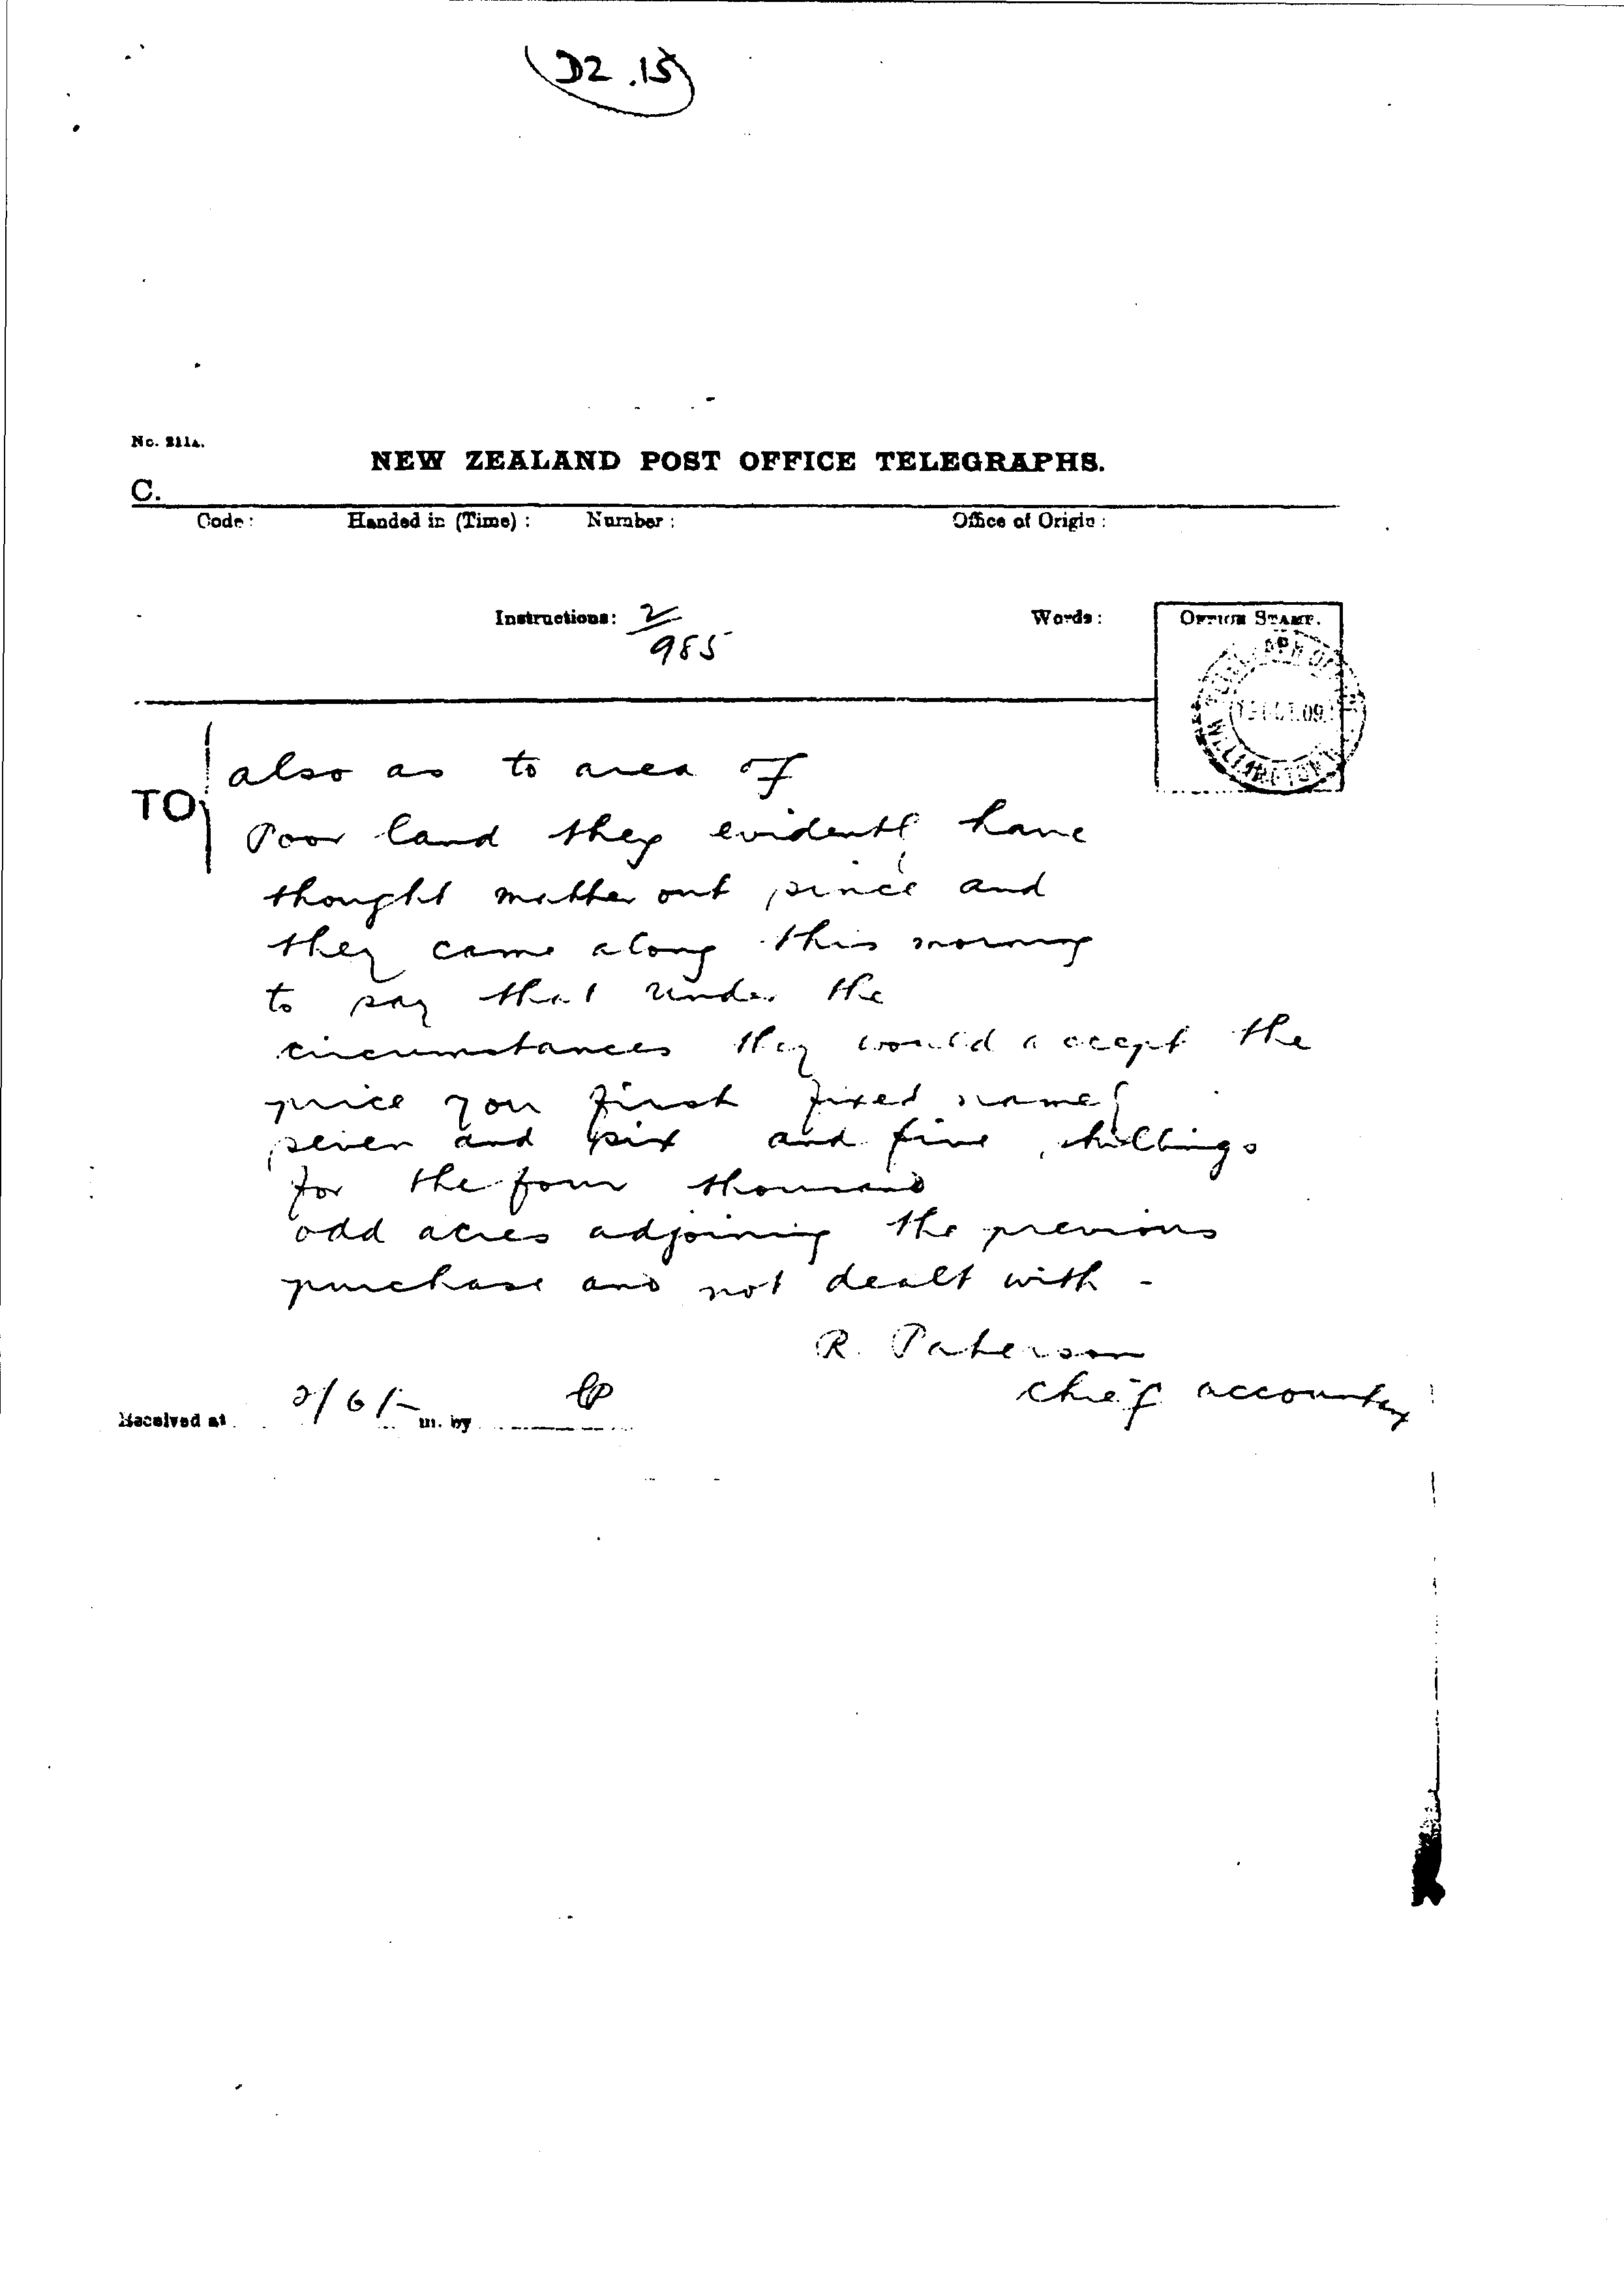 D2.15
No. 211A.
NEW ZEALAND POST OFFICE TELEGRAPHS.
C.
Code: Handed in (Time): Number: Office of Origin:
Instructions: 2/985 Words: OFFICE STAMP.
TELEGRAPH OFFICE
09
WELLINGTON
TO
also as to area of
Poor land they evidently have
thought matter out since and
they came along this morning
to say that under the
circumstances they would accept the
price you first fixed namely
seven and six and five shillings
for the four thousand
odd acres adjoining the previous
purchase and not dealt with -
R. Paterson
Chief accountant
Received at 2/6/- m. by